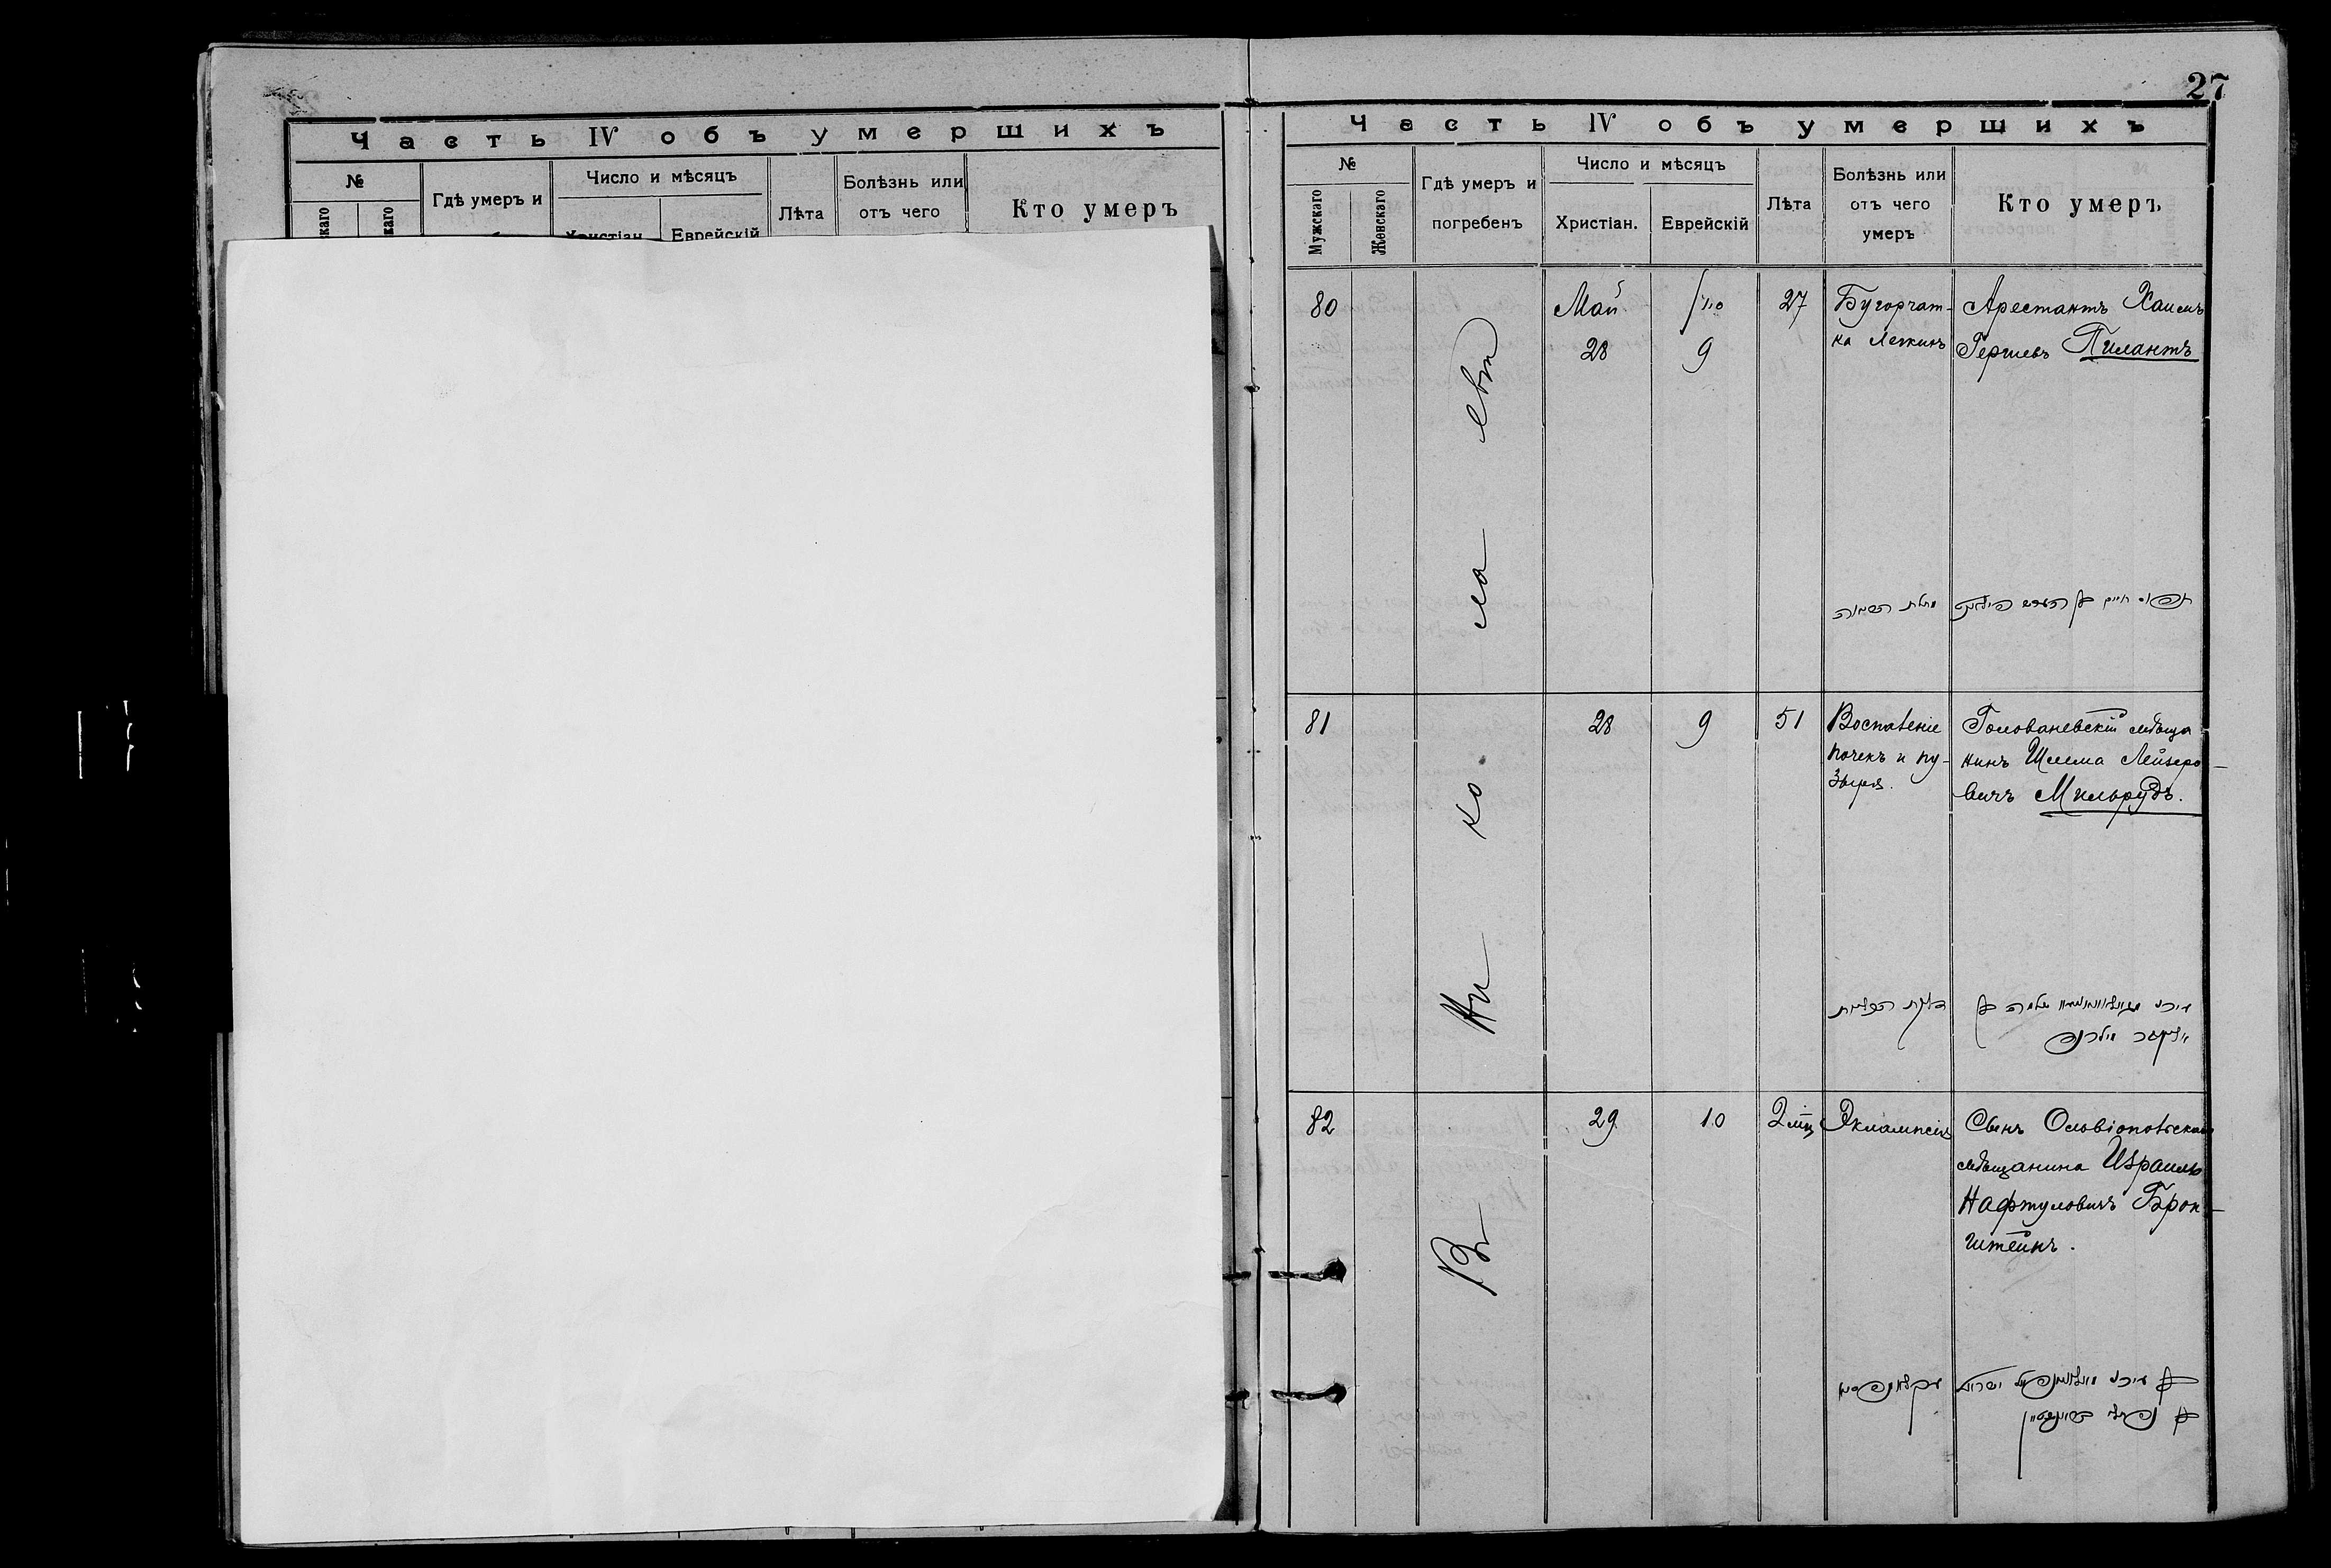 Часть IV объ умершихъ
№
Гдѣ умеръ и
Число и мѣсяцъ
Христіан.
Еврейскій
Лѣта
Болѣзнь или
отъ чего
Кто умеръ
27
Часть IV объ умершихъ
№
Мужскаго
Женскаго
Гдѣ умеръ и
погребенъ
Число и мѣсяцъ
Христіан.
Еврейскій
Лѣта
Болѣзнь или
отъ чего
умеръ
Кто умеръ
Въ Николаевѣ
80
Май
28
9
27
Бугорчат-
ка Легкихъ
Арестантъ Хаимъ
Гершевъ Пилантъ
81
28
9
51
Воспаленіе
почекъ и пу-
зыря.
Голованевскій мѣща
нинъ Шлема Лейзеро-
вичъ Мильрудъ.
82
29
10
2 мц
Эклампсія
Сынъ Ольвіопольскаго
мѣщанина Израиль
Нафтуловичъ Брон-
штейнъ.